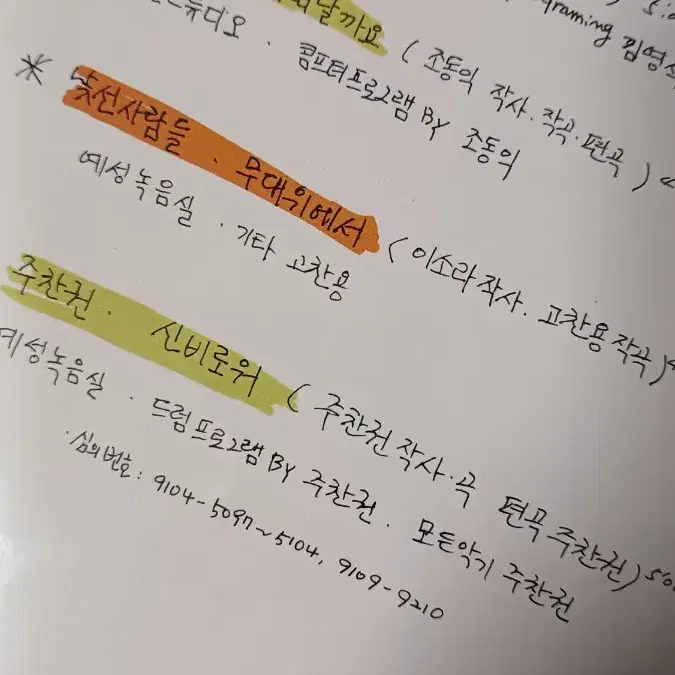 날까요 ( 조동익 작사.작곡.편곡 )
graming 김영석
튜디오 . 콤프터프로그램 By 조동익
* 낯선사람들 . 무대위에서 ( 이소라작사. 고찬용작곡)
예성녹음실 . 기타 고찬용
주찬권 . 신비로워 ( 주찬권작사.곡 편곡주찬권)
예성녹음실 . 드럼프로그램 By 주찬권 . 모든악기 주찬권
.심의번호 : 9104-5097~5104, 9109-9210